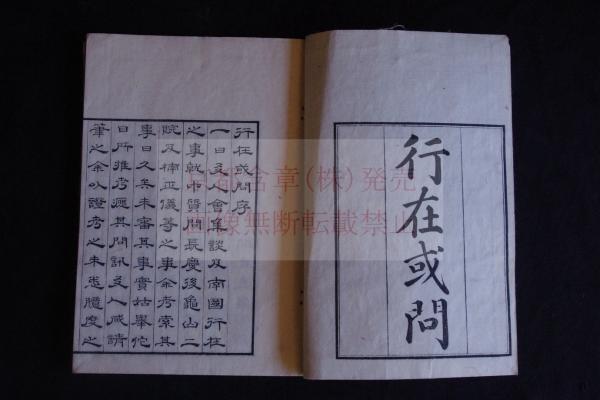 行在或問
行在或問序
一日友人會集談及南國行在
之事就中質問長慶後龜山二
院及楠正儀等之事余考索其
事日久矣未審其事實姑舉佗
日所推考應其問訊友人咸請
筆之余以證考之未悉臆度之
京都含章(株)発売
画像無断転載禁止